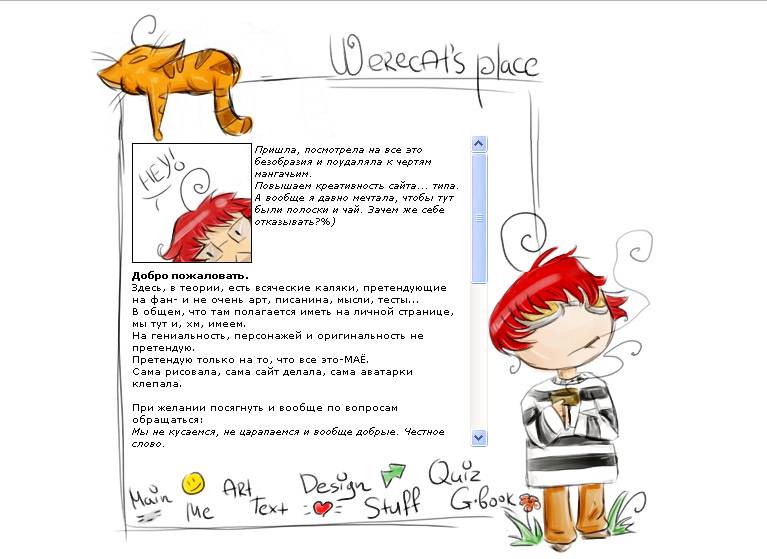 Werecat's place
HEY!
Пришла, посмотрела на все это
безобразия и поудаляла к чертям
мангачьим.
Повышаем креативность сайта... типа.
А вообще я давно мечтала, чтобы тут
были полоски и чай. Зачем же себе
отказывать?%)
Добро пожаловать.
Здесь, в теории, есть всяческие каляки, претендующие
на фан- и не очень арт, писанина, мысли, тесты...
В общем, что там полагается иметь на личной странице,
мы тут и, хм, имеем.
На гениальность, персонажей и оригинальность не
претендую.
Претендую только на то, что все это-МАЁ.
Сама рисовала, сама сайт делала, сама аватарки
клепала.
При желании посягнуть и вообще по вопросам
обращаться:
Мы не кусаемся, не царапаемся и вообще добрые. Честное
слово.
Main Me Art Text Design Stuff Quiz G-book